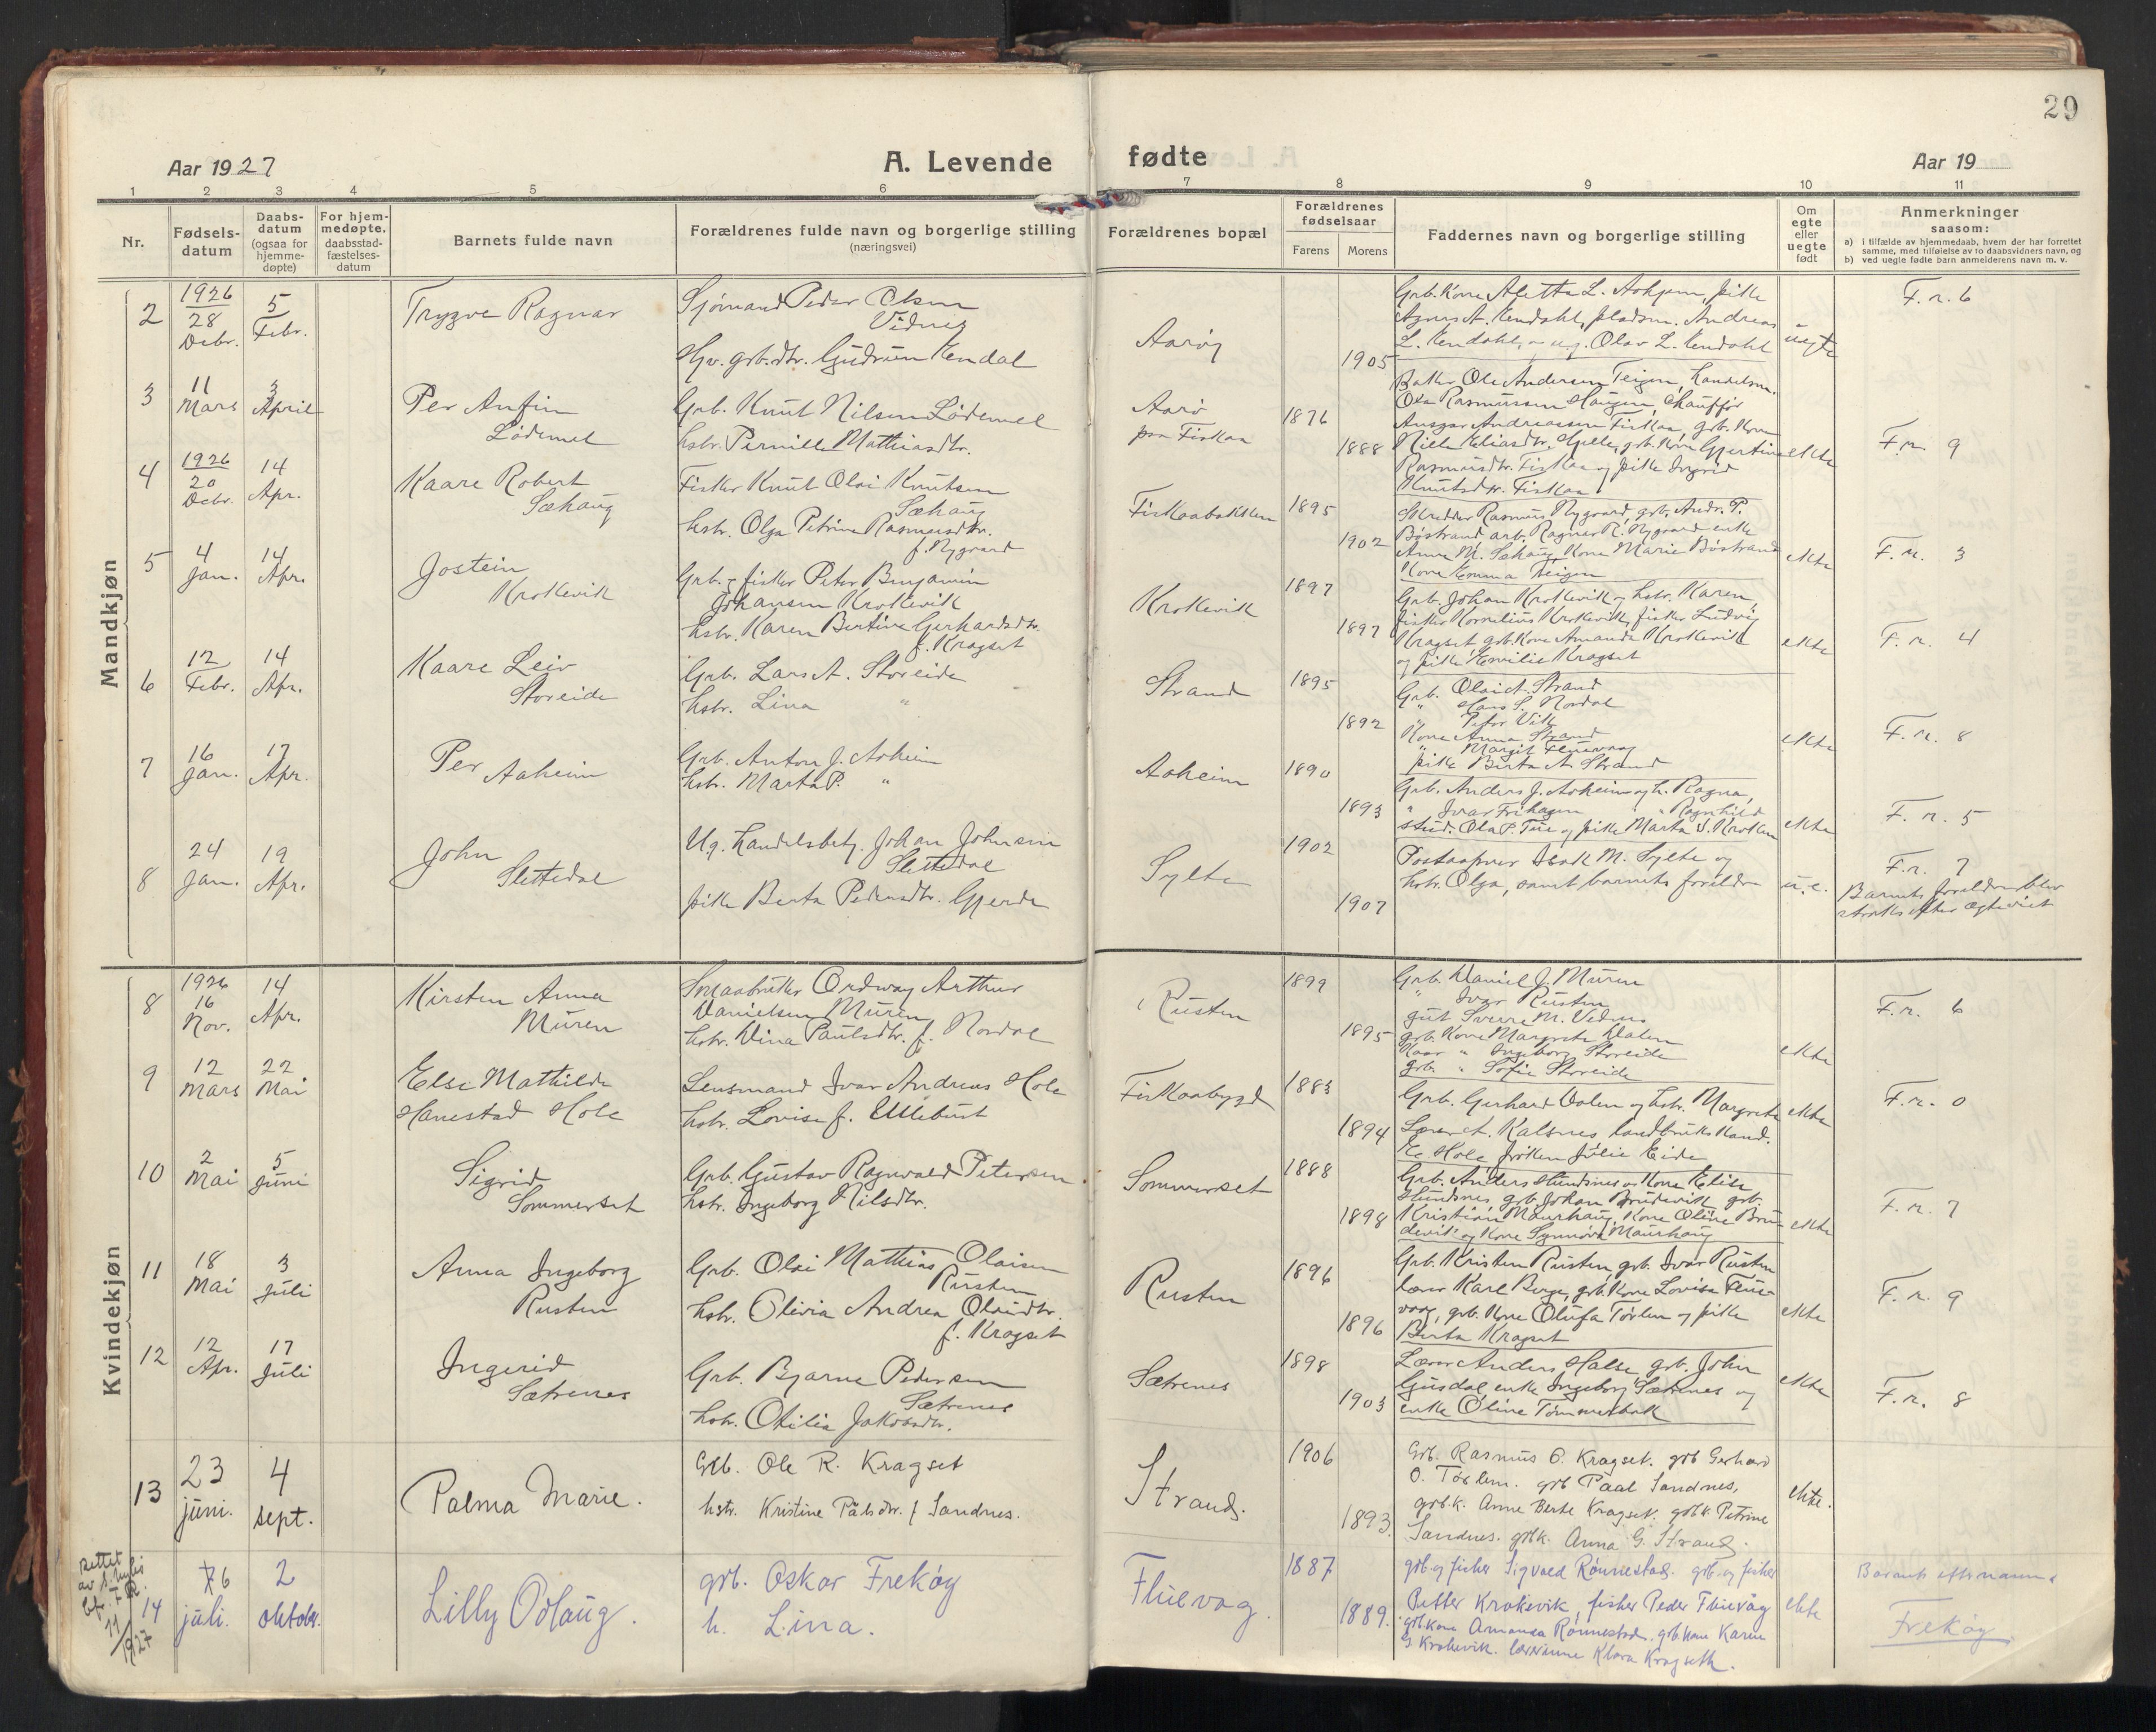 29
Aar 1927
A. Levende fødte
Aar 19
1 2 3 4 5 6 7 8 9 10 11
Nr.
Fødsels-
datum
Daabs-
datum
(ogsaa for
hjemme-
døpte)
For hjem-
medøpte,
daabsstad-
fæstelses-
datum
Barnets fulde navn
Forældrenes fulde navn og borgerlige stilling
(næringsvei)
Forældrenes bopæl
Forældrenes
fødselsaar
Farens Morens
Faddernes navn og borgerlige stilling
Om
egte
eller
uegte
født
Anmerkninger
saasom:
a) i tilfælde av hjemmedaab, hvem der har forrettet
samme, med tilføielse av to daabsvidners navn, og
b) ved uegte fødte barn anmelderens navn m. v.
Mandkjøn
2
1926
28
Debr.
5
Febr.
Trygve Ragnar
Sjømand Peder Olsen
Vidnes
Hv. grb.dtr. Gudrun Hendal
Aarøy
1905
Grb. Kone Aletta L. Aahjem, pike
Agnes A. Hendahl, pladsm. Andreas
L. Hendahl, og u.g. Olav L. Hendahl
uegte
F. n. 6
3
11
Mars
3
April
Per Anfin
Lødemel
Grb. Knut Nilsen Lødemel
hstr. Pernille Mathiasdtr.
Aarø
paa Fiskaa
1876
1888
Baker Ole Andersen Teigen, handelsm.
Ola Rasmussen Haugen, Chauffør
Ansgar Andreassen Fiskaa, grb. Kone
Nille Eliasdtr. Hjelle, grb. Kone Gjertine
Rasmusdtr. Fiskaa og pike Ingrid
Knutsdtr. Fiskaa
ekte
F. n. 9
4
1926
20
Debr.
14
Apr.
Kaare Robert
Sæhaug
Fisker Knut Olai Knutsen
Sæhaug
hstr. Olga Petrine Rasmusdtr.
f. Nygaard
Fiskaabakken
1895
1902
Skrædder Rasmus Nygaard, grb. Andr. P.
Bøstrand arb. Ragnar R. Nygaard enke
Anne M. Sæhaug Kone Marie Bøstrand
Kone Emma Teigen
ekte
F. n. 3
5
4
Jan.
14
Apr.
Jostein
Krokevik
Grb. og fisker Peter Benjamin
Johansen Krokevik
hstr. Karen Bertine Gerhardsdtr.
f. Kragset
Krokevik
1897
1897
Grb. Johan Krokevik og hstr. Karen,
fisker Kornelius Krokevik, fisker Ludvig
Kragset, grb. Kone Amanda Krokevik
og pike Emilie Kragset
ekte
F. n. 4
6
12
Febr.
14
Apr.
Kaare Leiv
Storeide
Grb. Lars A. Storeide
hstr. Lina "
Strand
1895
1892
Grb. Olai A. Strand
" Hans S. Nordal
" Peter Vik
Kone Anna Strand
" Margit Fluevaag
pike Berta A. Strand
ekte
F. n. 8
7
16
Jan.
17
Apr.
Per Aaheim
Grb. Anton J. Aaheim
hstr. Marta P. "
Aaheim
1890
1893
Grb. Anders J. Aaheim og h. Ragna,
" Ivar Frihagen " " Ragnhild
stud. Ola P. Tue og pike Marta S. Kroken
ekte
F. n. 5
8
24
Jan.
19
Apr.
John
Slettedal
U.g. handelsbetj. Johan Johnsen
Slettedal
pike Berta Pedersdtr. Gjerde
Sylte
1902
1907
Postaapner Isak M. Sylte og
hstr. Olga, samt barnets foreldre
u. e.
F. n. 7
Barnets foreldre blev
straks efter ægteviet
Kvindekjøn
8
1926
16
Nov.
14
Apr.
Kirsten Anna
Muren
Smaabruker Ordway Arthur
Danielsen Muren
hstr. Dina Paulsdtr. f. Nordal
Rusten
1899
1895
Grb. Daniel J. Muren
" Ivar Rusten
gut Sverre M. Vednes
grb. Kone Margrete Dalen
Kaar " Ingeborg Storeide
grb. " Sofie Storeide
ekte
F. n. 6
9
12
Mars
22
Mai
Else Mathilde
Hanestad Hole
Lensmand Ivar Andreas Hole
hstr. Lovise f. Ullebust
Fiskaabygd
1883
1894
Grb. Gerhard Dalen og hstr. Margrete
Lærer A. Kalsnes landbrukskand.
E. Hole frøken Julie Eide
ekte
F. n. 0
10
2
Mai
5
Juni
Sigrid
Sommerset
Grb. Gustav Ragnvald Petersen
hstr. Ingeborg Nilsdtr.
Sommerset
1888
1898
Grb. Anders Hundsnes og Kone Elise
Hundsnes, grb. Johan Brudevik, grb.
Kristian Maurhaug, Kone Oline Bru
devik og Kone Synnøve Maurhaug
ekte
F. n. 7
11
18
Mai
3
Juli
Anna Ingeborg
Rusten
Grb. Olai Mathias Olaisen
Rusten
hstr. Olivia Andrea Olaisdtr.
f. Kragset
Rusten
1896
1896
Grb. Kristen Rusten, grb. Ivar Rusten
lærer Karl Berge, grb. Kone Lovise Flue-
vaag, grb. Kone Olufa Tørlen og pike
Berta Kragset
ekte
F. n. 9
12
12
Apr.
17
Juli
Ingerid
Sætrenes
Grb. Bjarne Pedersen
Sætrenes
hstr. Otilia Jakobsdtr.
Sætrenes
1898
1903
Lærer Anders Halse, grb. John
Gusdal, enke Ingeborg Sætrenes og
enke Oline Tømmerbak
ekte
F. n. 8
13
23
juni.
4
sept.
Palma Marie.
Grb. Ole R. Kragset
hstr. Kristine Pålsdtr. f. Sandnes.
Strand.
1906
1893.
Grb. Rasmus O. Kragset. grb Gerhard
O. Tørlen. grb Paal Sandnes,
grb.k. Anne Berte Kragset. grb.k. Petrine
Sandnes. grb.k. Anna G. Strand.
ekte.
Rettet
11/1927
14
6
juli.
2
oktober.
Lilly Odlaug.
grb. Oskar Frekøy
h. Lina.
Fluevag.
1887
1889.
grb. og fisher Sigvald Rønnestad. grb. og fisher
Petter Krokevik, fisher Peder Fluevåg
grb kone Amanda Rønnestad. grb. kone Karen
G. Krokevik. lærerinne Klara Kragseth.
ekte
Barnets efternavn
Frekøy